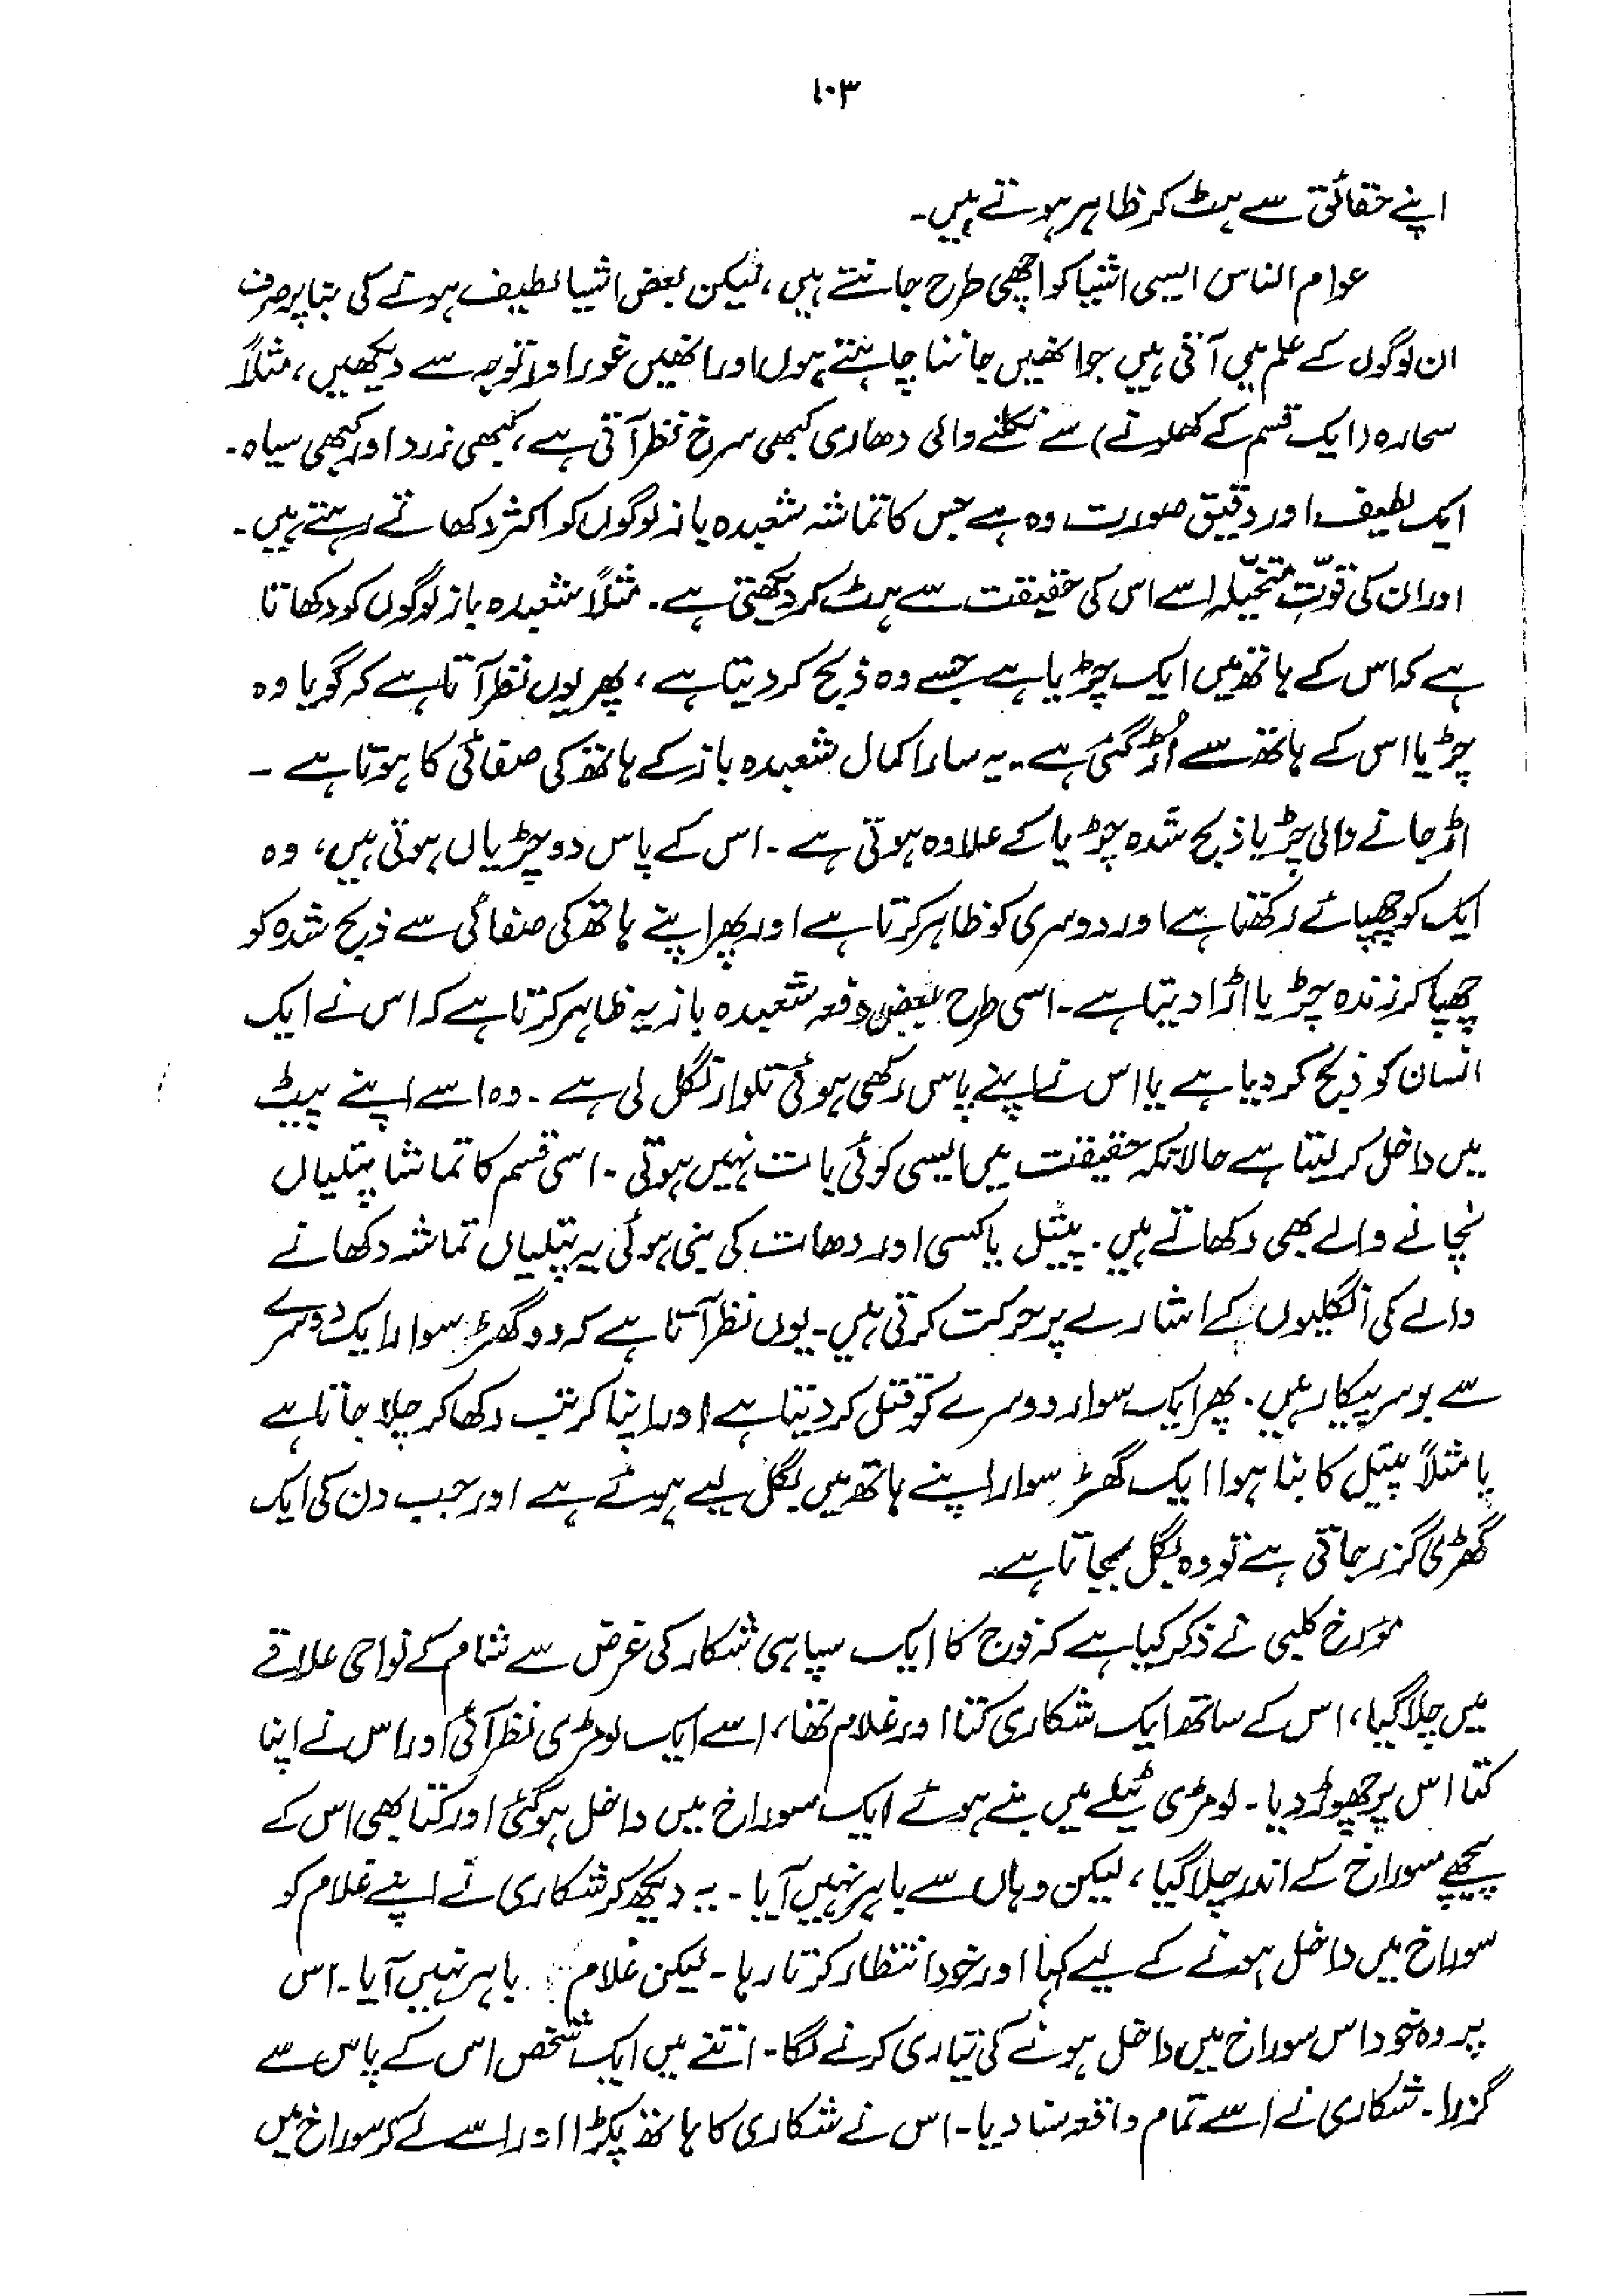 ۱۰۳
اپنے حقائق سے ہٹ کر ظاہر ہوتے ہیں۔
عوام الناس ایسی اشیا کو اچھی طرح جانتے ہیں، لیکن بعض اشیا لطیف ہونے کی بنا پر صرف
ان لوگوں کے علم میں آتی ہیں جو انھیں جاننا چاہتے ہوں اور انھیں غور اور توجہ سے دیکھیں، مثلاً
سحارہ (ایک قسم کے کھلونے) سے نکلنے والی دھاری کبھی سرخ نظر آتی ہے، کبھی زرد اور کبھی سیاہ۔
ایک لطیف اور دقیق صورت وہ ہے جس کا تماشہ شعبدہ باز لوگوں کو اکثر دکھاتے رہتے ہیں۔
اور ان کی قوّتِ متخیّلہ اسے اس کی حقیقت سے ہٹ کر دیکھتی ہے۔ مثلاً شعبدہ باز لوگوں کو دکھاتا
ہے کہ اس کے ہاتھ میں ایک چڑیا ہے جسے وہ ذبح کر دیتا ہے، پھر یوں نظر آتا ہے کہ گویا وہ
چڑیا اس کے ہاتھ سے اُڑ گئی ہے۔ یہ سارا کمال شعبدہ باز کے ہاتھ کی صفائی کا ہوتا ہے ۔
اڑ جانے والی چڑیا ذبح شدہ چڑیا کے علاوہ ہوتی ہے ۔ اس کے پاس دو چڑیاں ہوتی ہیں، وہ
ایک کو چھپائے رکھتا ہے اور دوسری کو ظاہر کرتا ہے اور پھر اپنے ہاتھ کی صفائی سے ذبح شدہ کو
چھپا کر زندہ چڑیا اڑا دیتا ہے۔ اسی طرح بعض دفعہ شعبدہ باز یہ ظاہر کرتا ہے کہ اس نے ایک
انسان کو ذبح کر دیا ہے یا اس نے اپنے پاس رکھی ہوئی تلوار نگل لی ہے ۔ وہ اسے اپنے پیٹ
میں داخل کر لیتا ہے حالانکہ حقیقت میں ایسی کوئی بات نہیں ہوتی ۔ اسی قسم کا تماشا پتلیاں
نچانے والے بھی دکھاتے ہیں۔ پیتل یا کسی اور دھات کی بنی ہوئی یہ پتلیاں تماشہ دکھانے
والے کی انگلیوں کے اشارے پر حرکت کرتی ہیں۔ یوں نظر آتا ہے کہ دو گھڑ سوار ایک دوسرے
سے برسرپیکار ہیں۔ پھر ایک سوار دوسرے کو قتل کر دیتا ہے اور اپنا کرتب دکھا کر چلا جاتا ہے
یا مثلاً پیتل کا بنا ہوا ایک گھڑ سوار اپنے ہاتھ میں بگل لیے ہوئے ہے اور جب دن کی ایک
گھڑی گزر جاتی ہے تو وہ بگل بجاتا ہے۔
مؤرخ کلبی نے ذکر کیا ہے کہ فوج کا ایک سپاہی شکار کی غرض سے شام کے نواحی علاقے
میں چلا گیا، اس کے ساتھ ایک شکاری کتا اور غلام تھا، اسے ایک لومڑی نظر آئی اور اس نے اپنا
کتا اس پر چھوڑ دیا۔ لومڑی ٹیلے میں بنے ہوئے ایک سوراخ میں داخل ہو گئی اور کتا بھی اس کے
پیچھے سوراخ کے اندر چلا گیا، لیکن وہاں سے باہر نہیں آیا ۔ یہ دیکھ کر شکاری نے اپنے غلام کو
سوراخ میں داخل ہونے کے لیے کہا اور خود انتظار کرتا رہا ۔ لیکن غلام باہر نہیں آیا۔ اس
پر وہ خود اس سوراخ میں داخل ہونے کی تیاری کرنے لگا۔ اتنے میں ایک شخص اس کے پاس سے
گزرا۔ شکاری نے اسے تمام واقعہ سنا دیا۔ اس نے شکاری کا ہاتھ پکڑا اور اسے لے کر سوراخ میں